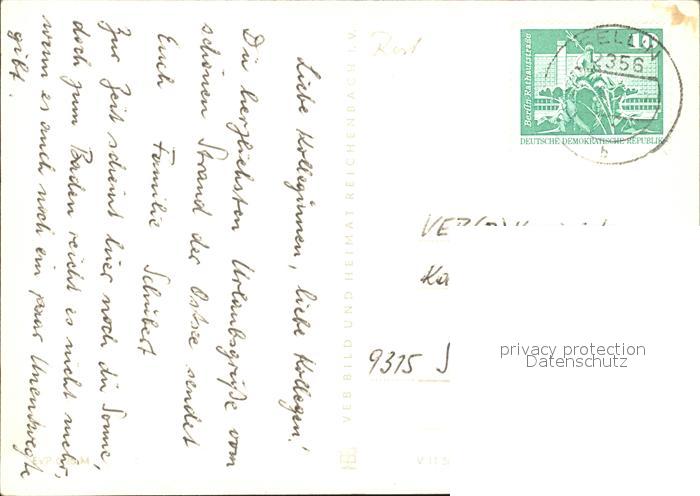 Liebe Kolleginnen, liebe Kollegen!
Die herzlichsten Urlaubsgrüße vom
schönen Strand der Ostsee sendet
Euch Familie Schubert
Zur Zeit scheint hier noch die Sonne,
doch zum Baden reicht es nicht mehr,
wenn es auch noch ein paar Unentwegte
gibt.
VEB BILD UND HEIMAT REICHENBACH i. V.
V 11 5
Berlin-Rathausstraße
10
DEUTSCHE DEMOKRATISCHE REPUBLIK
2356
b
VEB
9315
privacy protection
Datenschutz